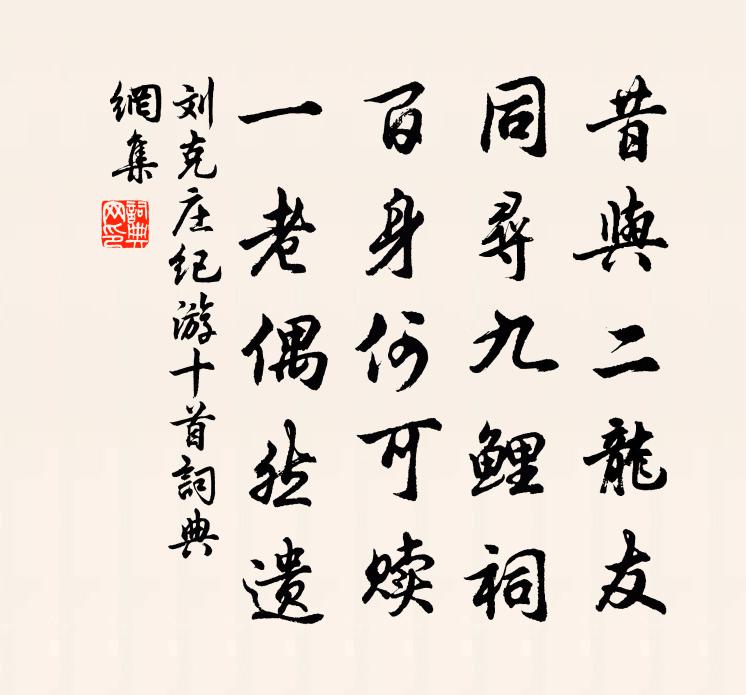 昔與二龍友
同尋九鯉祠
百身何可赎
一老偶然遗
刘克庄纪游十首詞典
網集
詞典網印